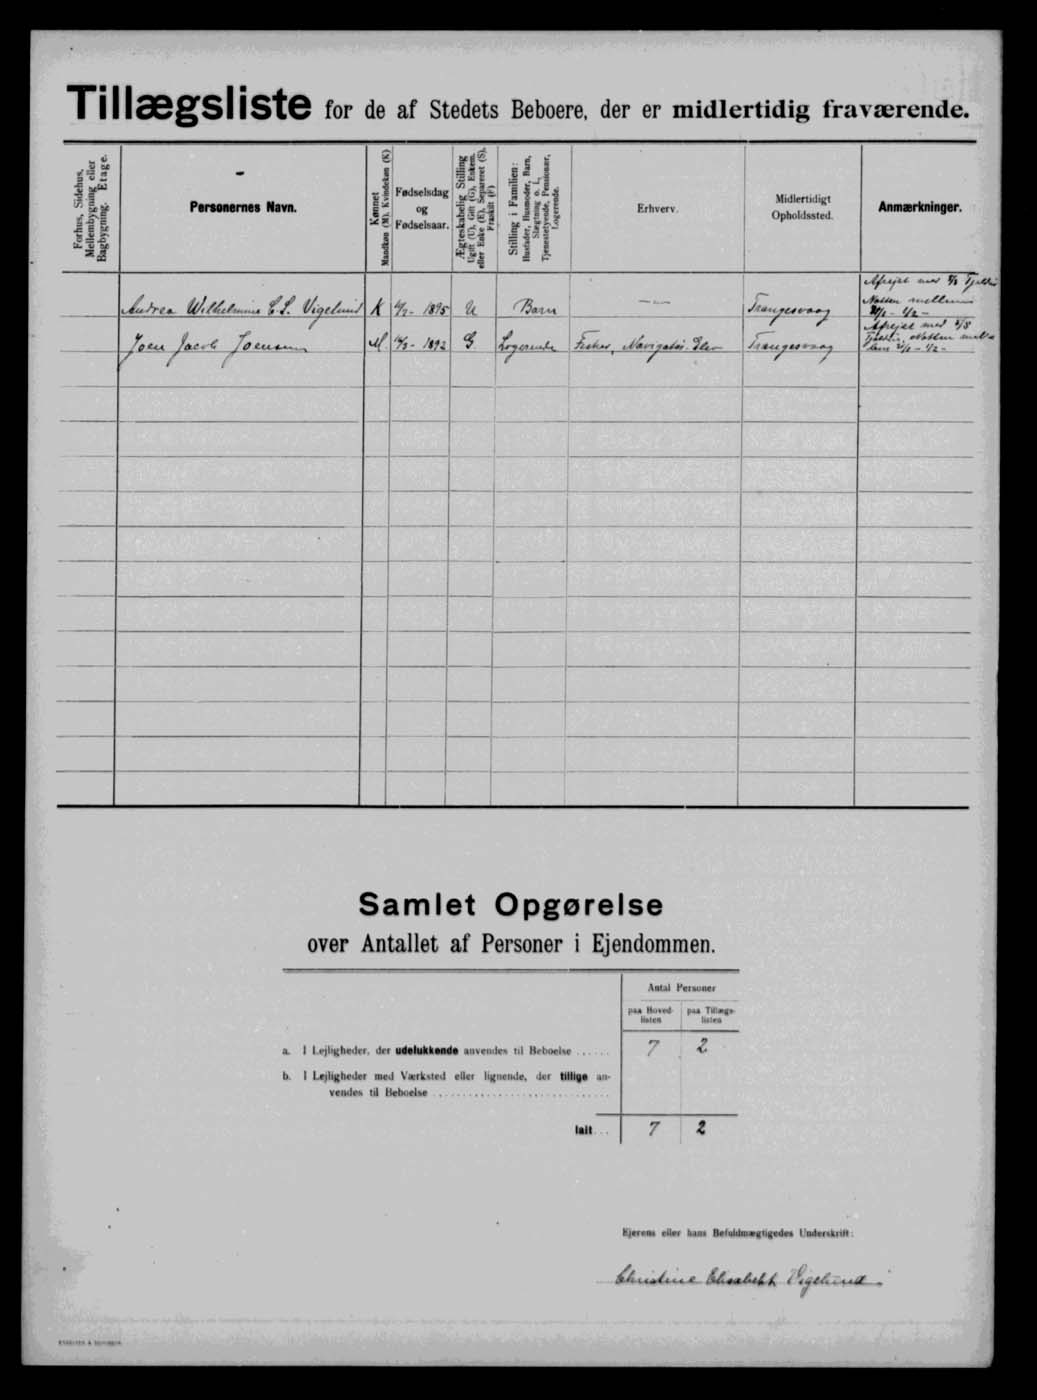 Tillægsliste for de af Stedets Beboere, der er midlertidig fraværende.
Forhus, Sidehus,
Mellembygning eller
Bagbygning. Etage.
Personernes Navn.
Kønnet
Mandkøn (M). Kvindekøn (K)
Fødselsdag
og
Fødselsaar.
Ægteskabelig Stilling
Ugift (U), Gift (G), Enkem.
eller Enke (E), Separeret (S),
Fraskilt (F)
Stilling i Familien:
Husfader, Husmoder, Barn,
Slægtning o. l.,
Tjenestetyende, Pensionær,
Logerende.
Erhverv.
Midlertidigt
Opholdssted.
Anmærkninger.
Andrea Wilhelmine C. S. Vigelund K 1895 U Barn — Trangesvaag
Afrejst med Tjaldur
Natten mellem
31/1 - 1/2 -
Joen Jacob Joensen M. 1892 G. Logerende Fisker, Navigatiø. Elev Trangesvaag
Afrejst med S/S
Tjaldur, Natten mel-
lem 31/1 - 1/2 -
Samlet Opgørelse
over Antallet af Personer i Ejendommen.
Antal Personer
paa Hoved-
listen
paa Tillægs-
listen
a. I Lejligheder, der udelukkende anvendes til Beboelse ...... 7 2
b. I Lejligheder med Værksted eller lignende, der tillige an-
vendes til Beboelse ..............................
Ialt... 7 2
Ejerens eller hans Befuldmægtigedes Underskrift:
Christine Elisabeth Vigelund